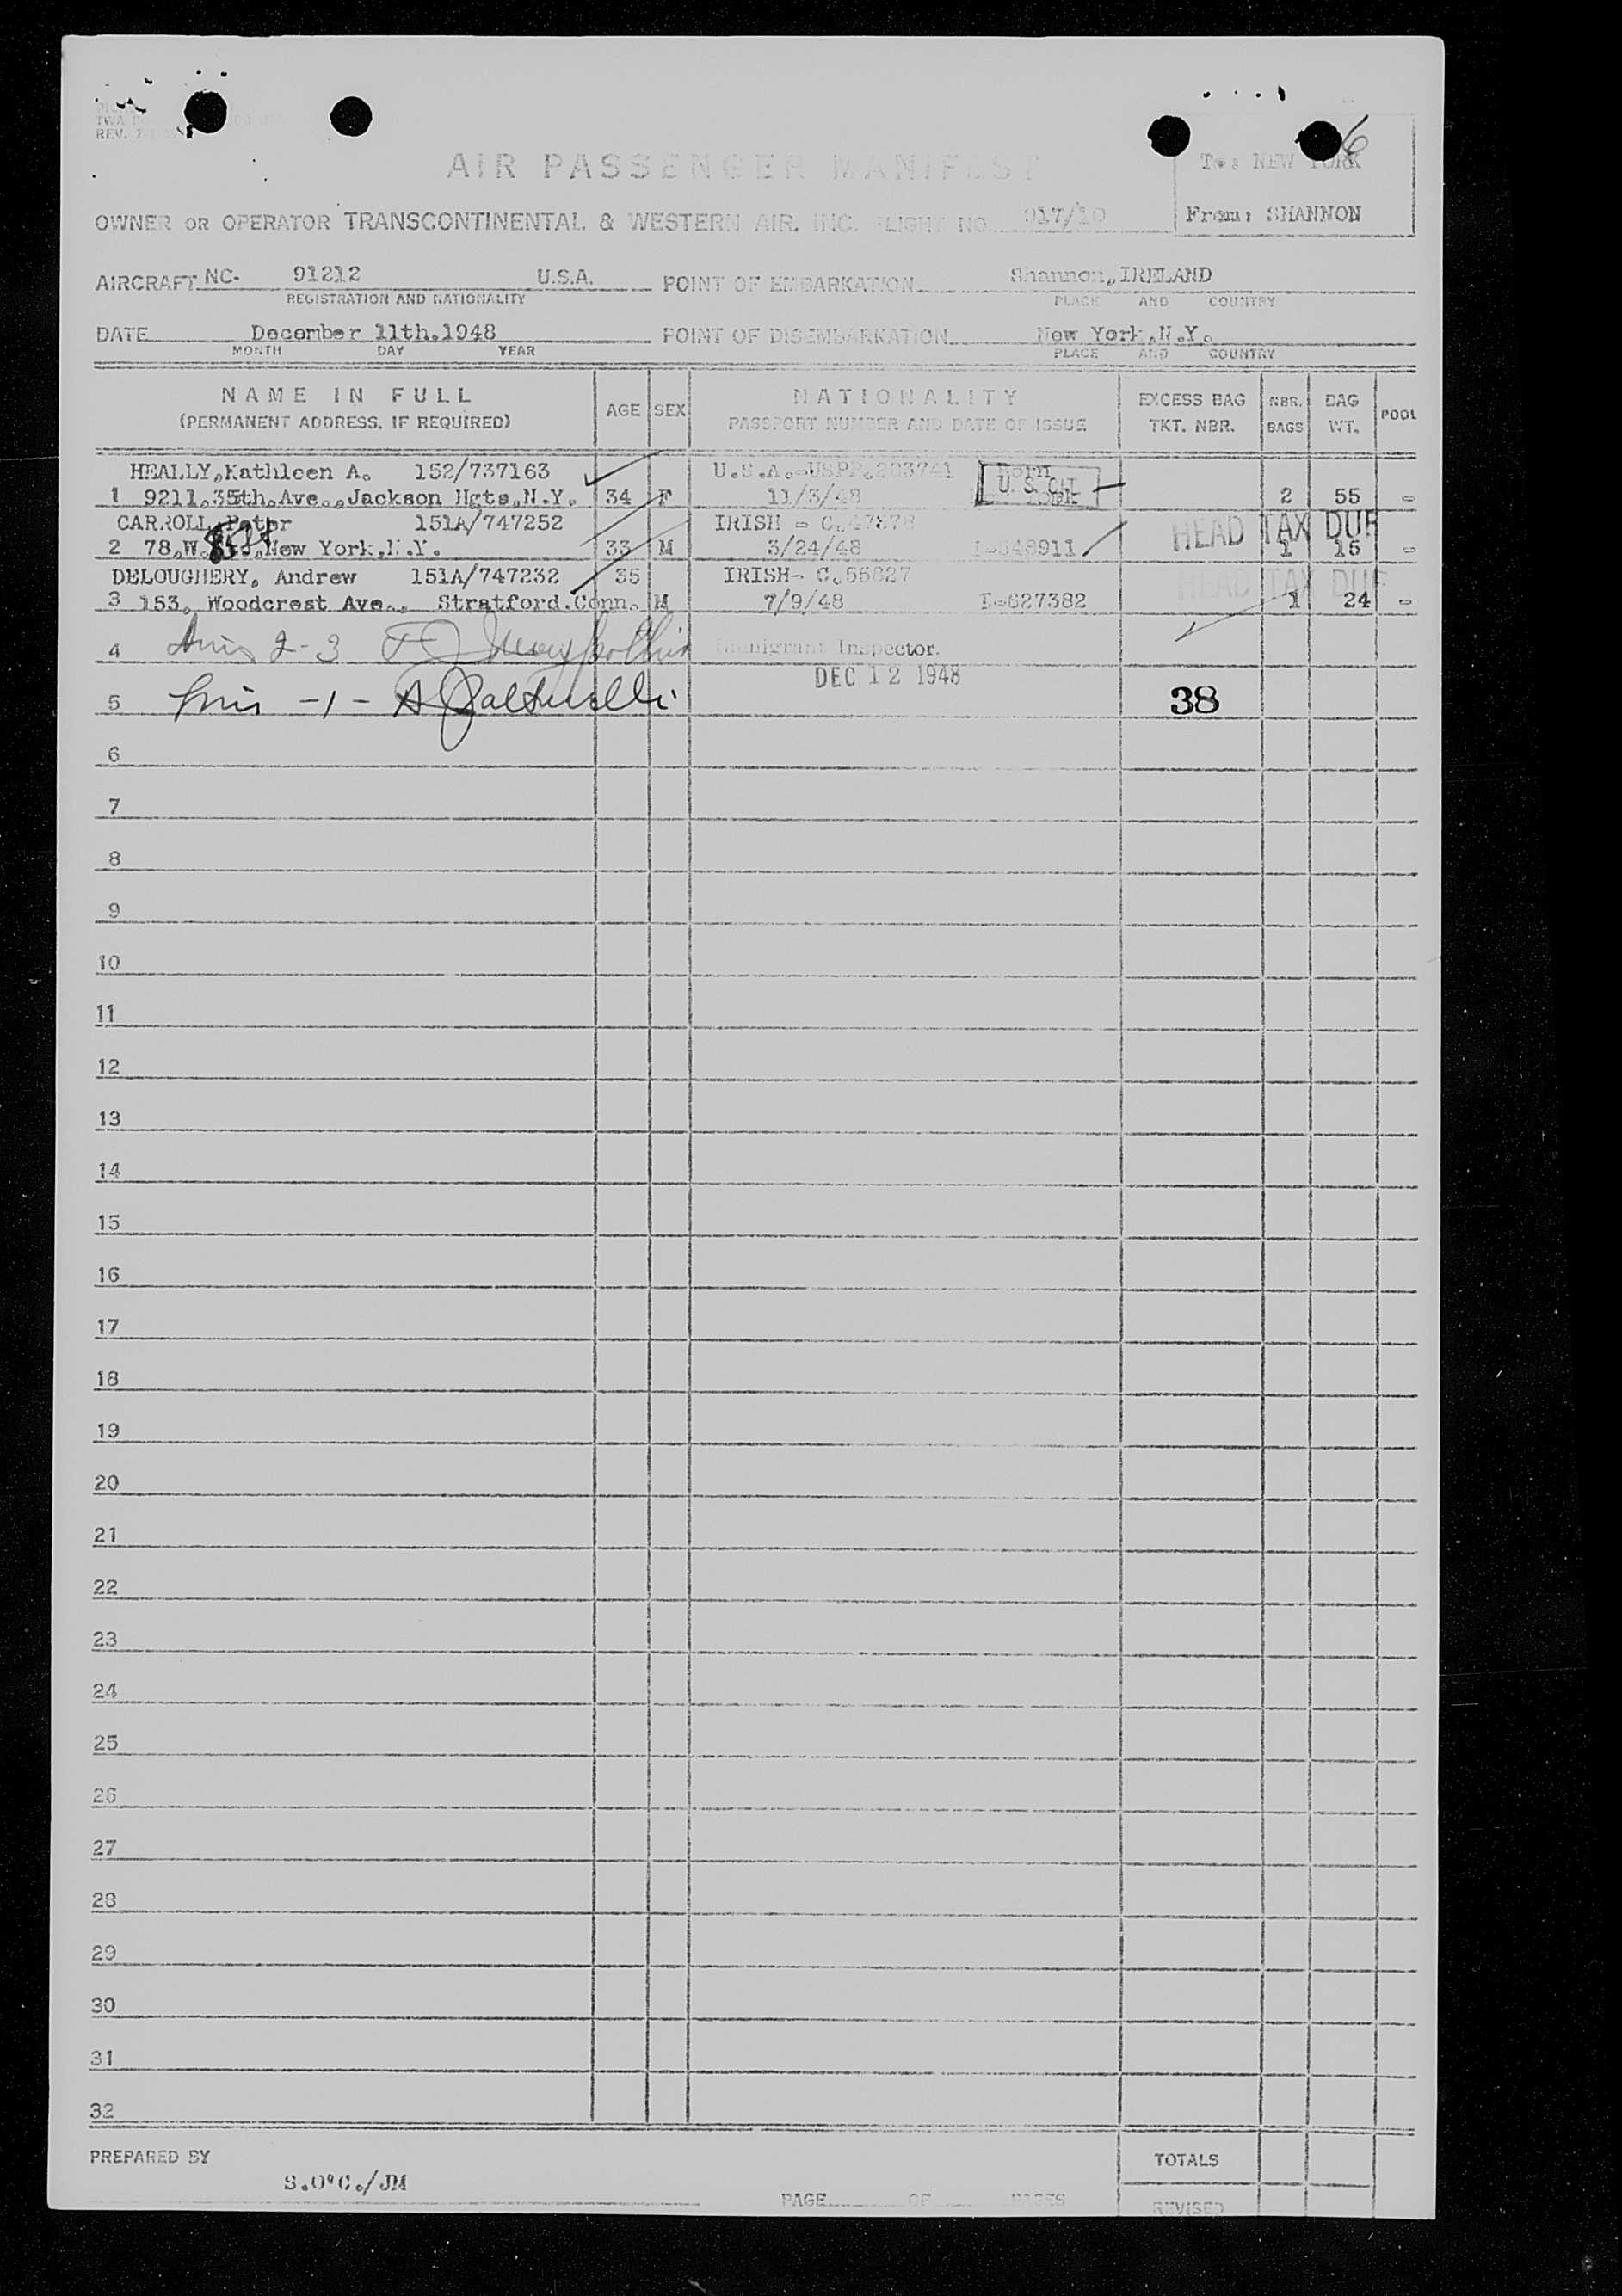 REV.
6
AIR PASSENGER MANIFEST
To: NEW YORK
From: SHANNON
OWNER OR OPERATOR TRANSCONTINENTAL & WESTERN AIR, INC. FLIGHT NO. 917/10
AIRCRAFT NC- 91212 U.S.A. POINT OF EMBARKATION Shannon, IRELAND
REGISTRATION AND NATIONALITY PLACE AND COUNTRY
DATE December 11th.1948 POINT OF DISEMBARKATION New York,N.Y.
MONTH DAY YEAR PLACE AND COUNTRY
NAME IN FULL AGE SEX NATIONALITY EXCESS BAG NBR. BAG POOL
(PERMANENT ADDRESS, IF REQUIRED) PASSPORT NUMBER AND DATE OF ISSUE TKT. NBR. BAGS WT.
HEALLY,Kathleen A. 152/737163 U.S.A.-USPP.203741 Born
1 9211.35th.Ave.,Jackson Hgts,N.Y. 34 F 11/3/48 U. S. CIT 2 55 -
CARROLL,Peter 151A/747252 IRISH - C.47878 HEAD TAX DUE
2 78,W.85th,New York,N.Y. 33 M 3/24/48 I-548911 1 16 -
DELOUGHERY, Andrew 151A/747232 35 IRISH- C.55827 HEAD TAX DUE
3 153, Woodcrest Ave., Stratford.Conn. M 7/9/48 I-627382 1 24 -
4 2-3 Immigrant Inspector.
DEC 12 1948
5 -1- 38
6
7
8
9
10
11
12
13
14
15
16
17
18
19
20
21
22
23
24
25
26
27
28
29
30
31
32
PREPARED BY TOTALS
S.O'C./JM
PAGE OF PAGES REVISED